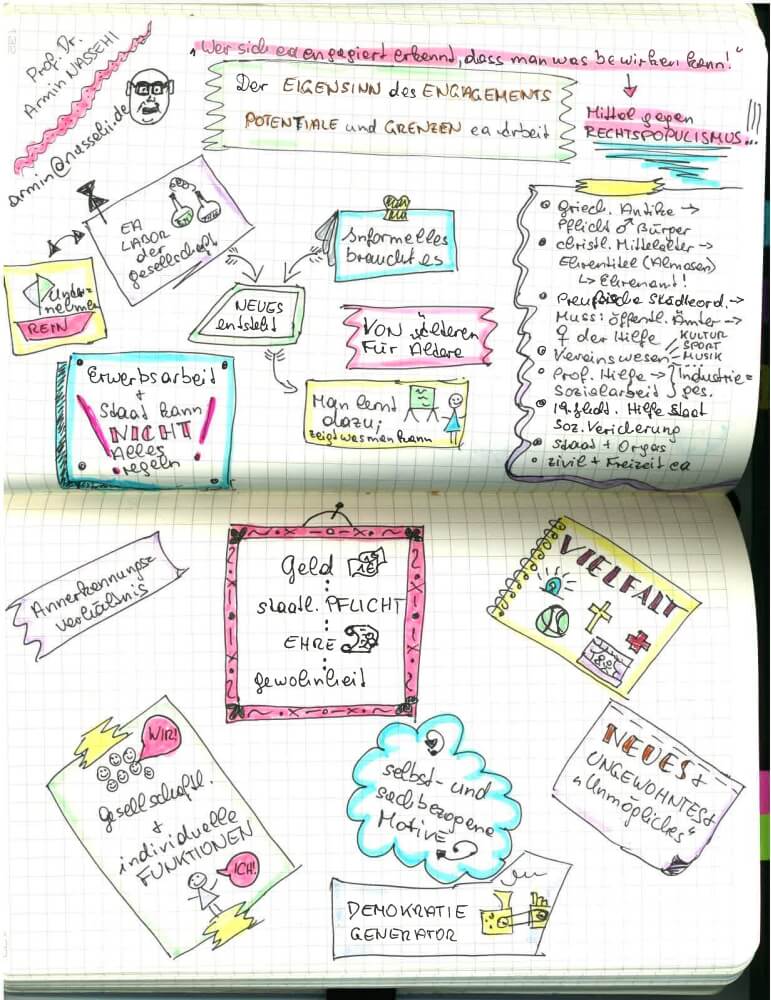 Prof. Dr.
Armin NASSEHI
armin@nassehi.de
"Wer sich ea engagiert erkennt, dass man was bewirken kann!"
Der EIGENSINN des ENGAGEMENTS
POTENTIALE und GRENZEN ea Arbeit
Mittel gegen
RECHTSPOPULISMUS...!!!
EA
LABOR
der
Gesellschaft
Unter=
nehmen
REIN
Informelles
braucht es
NEUES
entsteht
VON "älteren
Für Ältere
Erwerbsarbeit
+
Staat kann
NICHT
Alles
regeln
Man lernt
dazu,
zeigt was man kann
Griech. Antike →
Pflicht ♂ Bürger
christl. Mittelalter →
Ehrentitel (Almosen)
↳ Ehrenamt!
Preußische Städteord. →
Muss: öffentl. Ämter →
♀ der Hilfe
KULTUR
SPORT
Vereinswesen
MUSIK
Prof. Hilfe → } Industrie=
Sozialarbeit } ges.
19. Jhdt. Hilfe Staat
Soz. Vericherung
Staat + Orgas
zivil + Freizeit ea
Annerkennungs=
verhältnis
Geld
1€
staatl. PFLICHT
EHRE
gewohnheit
VIELFALT
WIR!
gesellschaftl.
+
individuelle
FUNKTIONEN
ICH!
selbst- und
sachbezogene
Motive
NEUES +
UNGEWOHNTES +
"Unmögliches"
DEMOKRATIE
GENERATOR